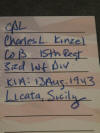 CPL
Charles L. Kinzel
Co B 15th Regt
3rd Inf Div
KIA: 13 Aug. 1943
Licata, Sicily